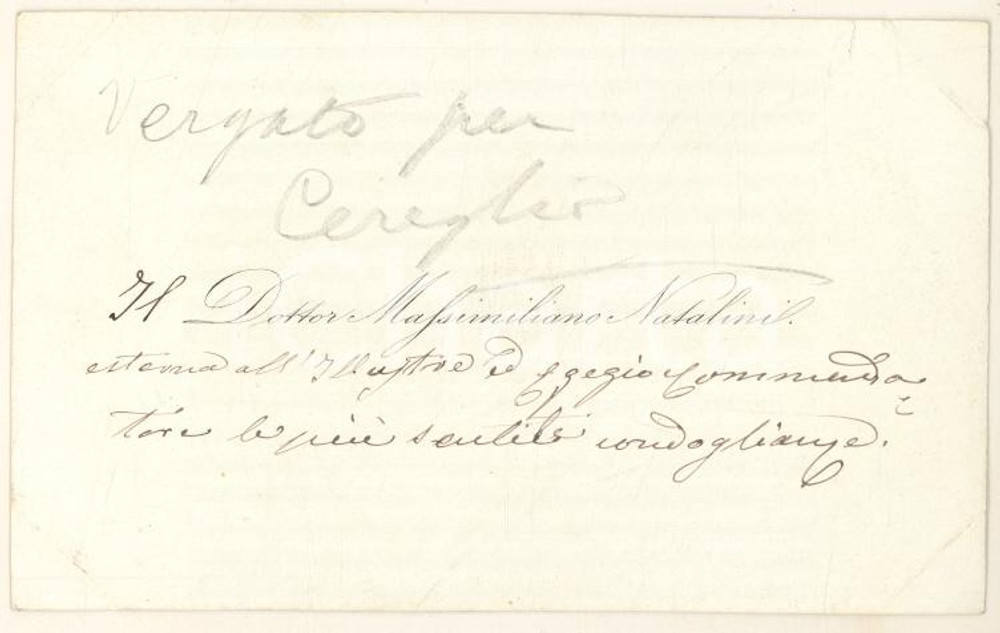 Vergato per
Cereglio
Il Dottor Massimiliano Natalini
esterna all'Illustre ed Egregio Commenda=
tore le più sentite condoglianze.